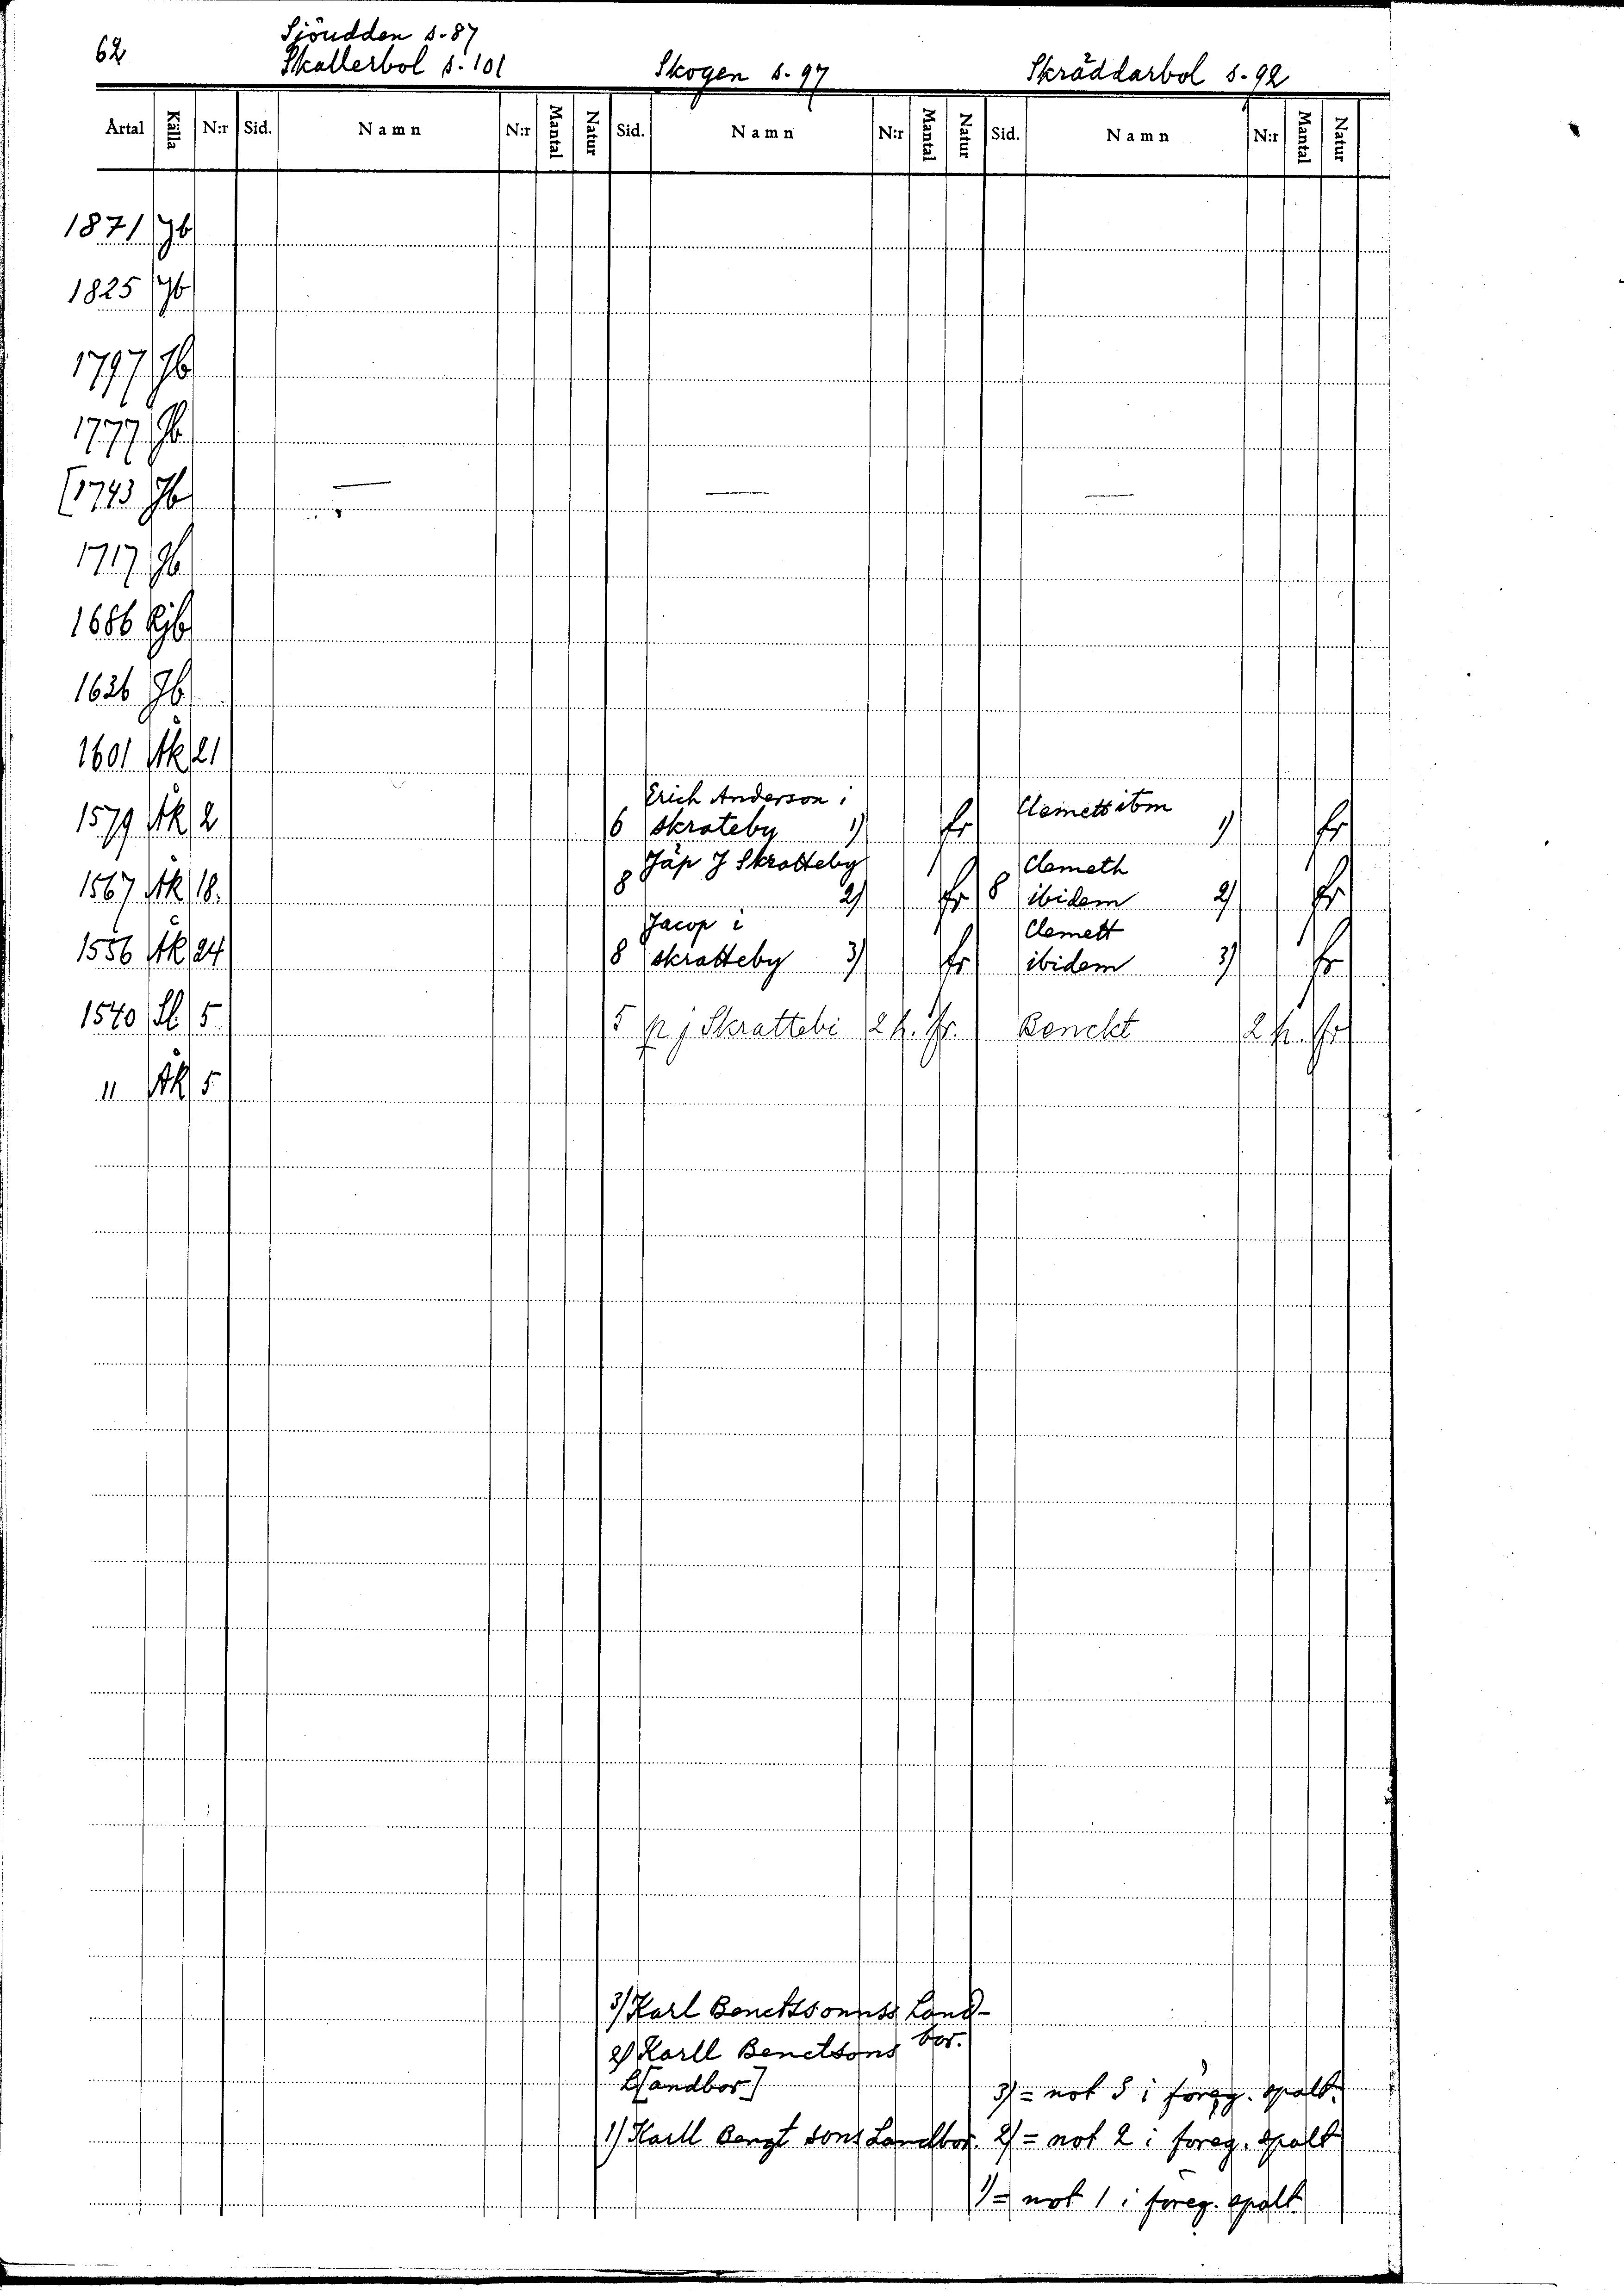 62
Sjöudden s. 87
Skallerbol s. 101
Skogen s. 97
Skräddarbol s. 92
Årtal Källa N:r Sid. Namn N:r Mantal Natur Sid. Namn N:r Mantal Natur Sid. Namn N:r Mantal Natur
1871 Jb
1825 Jb
1797 Jb
1777 Jb
[1743 Jb — — —
1717 Jb
1686 Jb
1626 Jb
1601 Äk 21
Erich Anderson i
Clemett ibm
1579 Äk 2 6 skrateby 1) fr 1) fr
Jäp J Skratteby
Clemeth
1567 Äk 18. 8 2) fr 8 ibidem 2) fr
Jacop i
Clemett
1556 Äk 24 8 skratteby 3) fr ibidem 3) fr
1540 Sl. 5 5 j Skrattebi 2 h. fr. Benckt 2 h. fr
" Äk 5
3) Karl Benctssonnss Land-
bor.
2) Karll Benctsons
L[andbor]
3) = not 3 i föreg. spalt.
1) Karll Bengt sons Landbor. 2) = not 2 i föreg. spalt
1) = not 1 i föreg. spalt